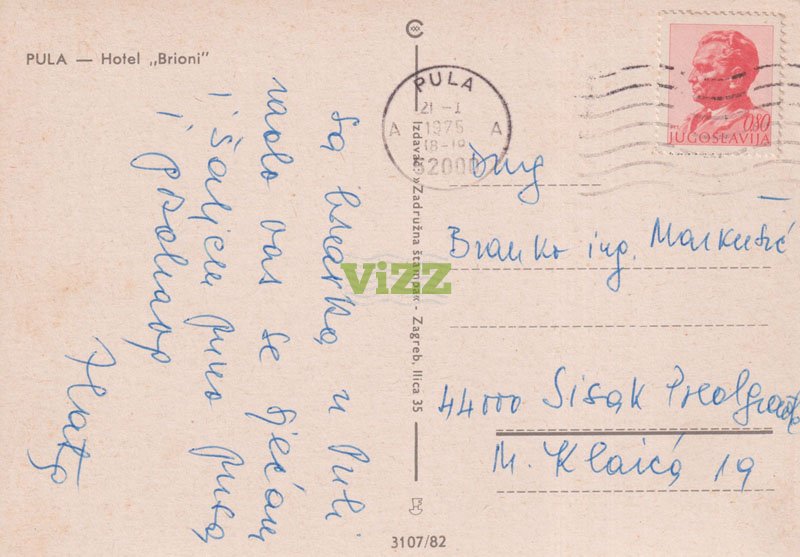 PULA — Hotel „Brioni"
sa braka, u Puli
rado vas se sjećam
i šaljem puno puta
i pozdrav
Zlata
PULA
21 -1
1975
18-19
52000
A A
0.80
JUGOSLAVIJA
Drug
Branko ing. Markušić
44000 Sisak Predgrađe
M. Klaića 19
Izdavač: »Zadružna štampa« - Zagreb, Ilica 35
3107/82
ViZZ